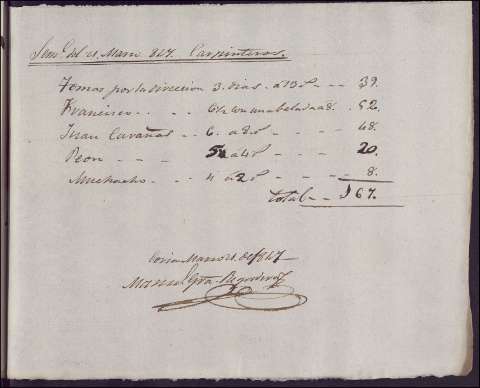 Sem.ª del 21. Marzo 847. Carpinteros.
Tomas por la direccion 3. dias. a 13 r.s - - 39.
Francisco . . 6½ con una belada a 8. - 52.
Juan Cavañas - - 6. a 8 r.s - - - 48.
Peon - - - 5 a 4 r.s - - - 20.
Muchacho - - - 4 a 2 r.s - - - 8.
total - - 167.
Coria Marzo 21. de 1847
Manuel Gra.